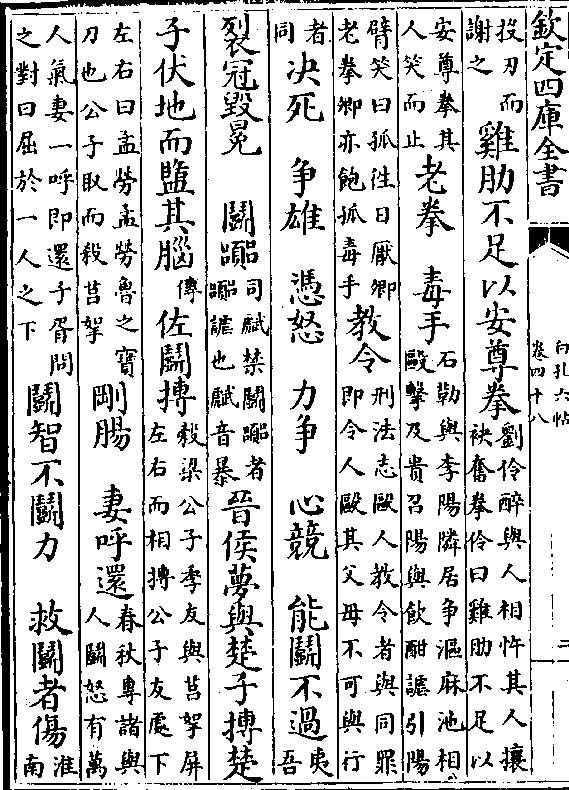 欽定四庫全書
白孔六帖
卷四十八
二
投刃而
謝之
雞肋不足以安尊拳
劉伶醉與人相忤其人攘
袂奮拳伶曰雞肋不足以
安尊拳其
人笑而止
老拳 毒手
石勒與李陽隣居争漚麻池相
毆擊及貴召陽與飲酣謔引陽
臂笑曰孤徃日厭卿
老拳卿亦飽孤毒手
教令
刑法志毆人教令者與同罪
即令人毆其父母不可與行
者
同
决死 争雄 憑怒 力争 心競 能鬭不過
夷
吾
裂冠毁冕 鬭囂
司虣禁鬭囂者
囂謔也虣音暴
晉侯夢與楚子搏楚
子伏地而盬其腦
傳
佐鬭搏
榖梁公子季友與莒挐屏
左右而相搏公子友處下
左右曰孟勞孟勞魯之寳
刀也公子取而殺莒挐
剛腸 妻呼還
春秋專諸與
人鬭怒有萬
人氣妻一呼即還子胥問
之對曰屈於一人之下
鬭智不鬭力 救鬭者傷
淮
南